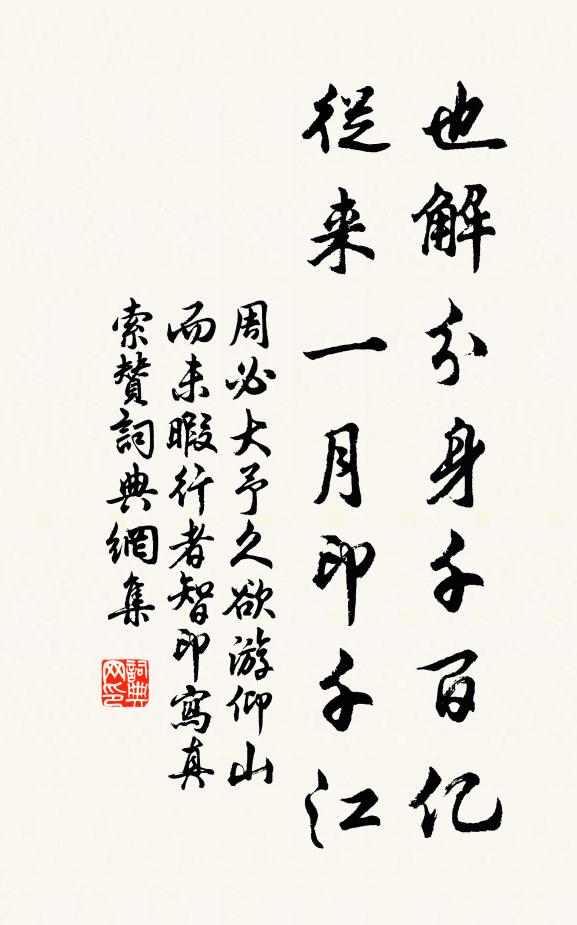 也解分身千百亿
從来一月印千江
周必大予久欲游仰山
而未暇行者智印寫真
索贊詞典網集
詞典网印